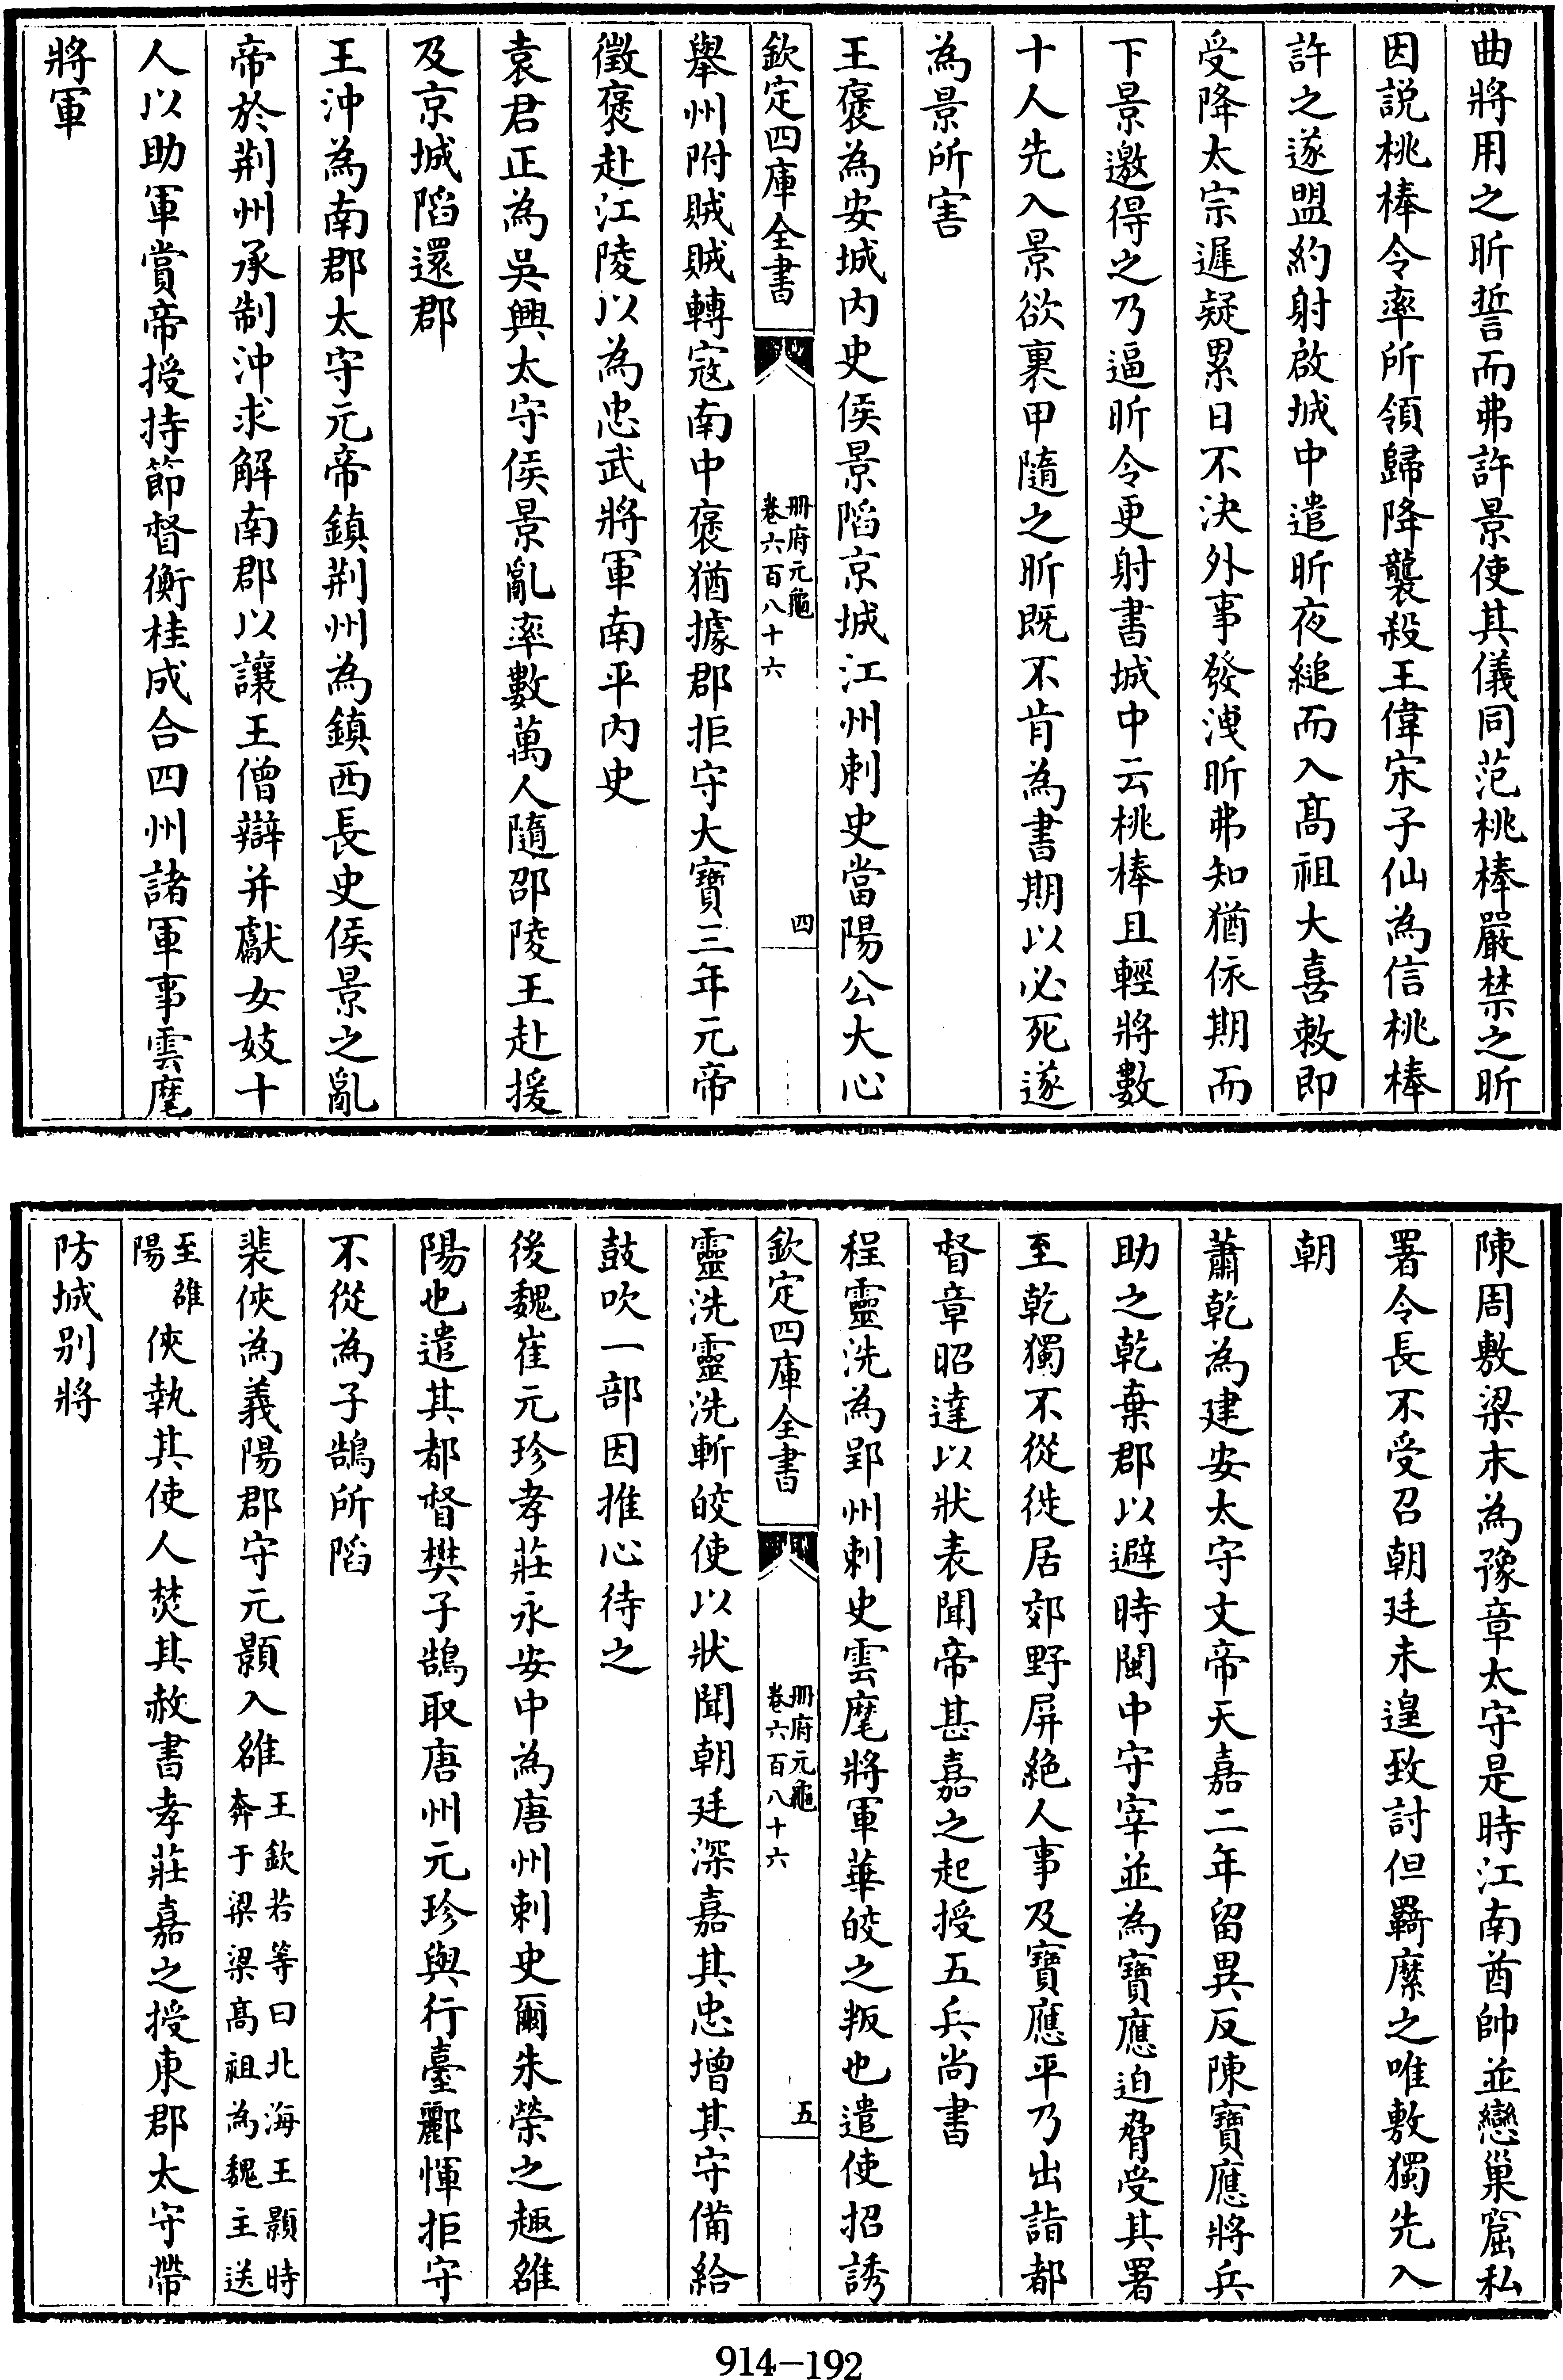 曲將用之昕誓而弗許景使其儀同范桃棒嚴禁之昕
因説桃棒令率所領歸降襲殺王偉宋子仙為信桃棒
許之遂盟約射啟城中遣昕夜縋而入髙祖大喜敕即
受降太宗遲疑累日不決外事發洩昕弗知猶依期而
下景邀得之乃逼昕令更射書城中云桃棒且輕將數
十人先入景欲裹甲隨之昕既不肯為書期以必死遂
為景所害
王褒為安城内史侯景陷京城江州刺史當陽公大心
欽定四庫全書
冊府元龜
卷六百八十六
四
舉州附賊賊轉寇南中褒猶據郡拒守大寶三年元帝
徵褒赴江陵以為忠武將軍南平内史
袁君正為吳興太守侯景亂率數萬人隨邵陵王赴援
及京城陷還郡
王沖為南郡太守元帝鎮荆州為鎮西長史侯景之亂
帝於荆州承制沖求解南郡以讓王僧辯并獻女妓十
人以助軍賞帝授持節督衡桂成合四州諸軍事雲麾
將軍
陳周敷梁末為豫章太守是時江南酋帥並戀巢窟私
署令長不受召朝廷未遑致討但羈縻之唯敷獨先入
朝
蕭乾為建安太守文帝天嘉二年留異反陳寶應將兵
助之乾棄郡以避時閩中守宰並為寶應迫脅受其署
至乾獨不從徙居郊野屏絶人事及寶應平乃出詣都
督章昭達以狀表聞帝甚嘉之起授五兵尚書
程靈洗為郢州刺史雲麾將軍華皎之叛也遣使招誘
欽定四庫全書
冊府元龜
卷六百八十六
五
靈洗靈洗斬皎使以狀聞朝廷深嘉其忠增其守備給
鼓吹一部因推心待之
後魏崔元珍孝莊永安中為唐州刺史爾朱榮之趣雒
陽也遣其都督樊子鵠取唐州元珍與行臺酈惲拒守
不從為子鵠所陷
裴俠為義陽郡守元顥入雒王欽若等曰北海王顥時
奔于梁梁髙祖為魏主送
至雒
陽俠執其使人焚其赦書孝莊嘉之授東郡太守帶
防城别將
914-192